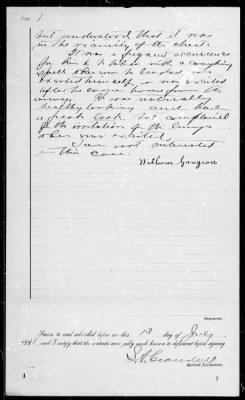 Page 7
but understood that it was
in the vicinity of the chest.
It was a frequent occurrence
for him to be taken with a coughing
spell when he to
exert himself or was excited
after he came home from the
army. He was naturally
healthy looking and had
a fresh look but complained
of the irritation of the lungs
when was excited.
I am not interested
in this case.
William Grayson
Deponent.
Sworn to and subscribed before me this 13 day of July
1888, and I certify that the contents were fully made known to deponent before signing.
Special Examiner.